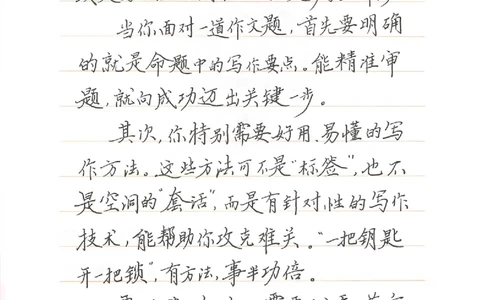 当你面对一道作文题,首先要明确
的就是命题中的写作要点。能精准审
题,就向成功迈出关键一步。
其次,你特别需要好用、易懂的写
作方法。这些方法可不是“标签”,也不
是空洞的“套话”,而是有针对性的写作
技术,能帮助你攻克难关。“一把钥匙
开一把锁”,有方法,事半功倍。